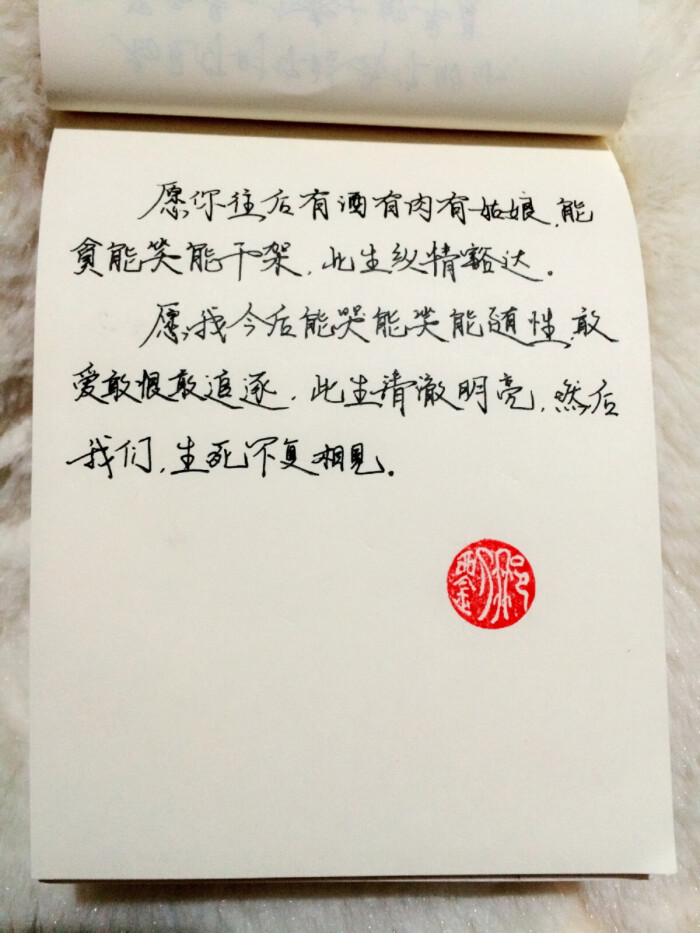 愿你往后有酒有肉有姑娘,能
贫能笑能干架,此生纵情豁达。
愿我今后能哭能笑能随性,敢
爱敢恨敢追逐,此生清澈明亮,然后
我们,生死不复相见。